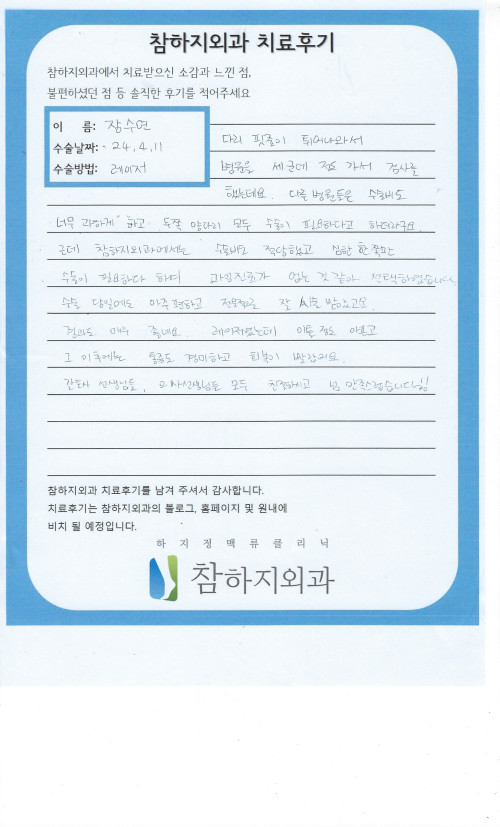 참하지외과 치료후기
참하지외과에서 치료받으신 소감과 느낀 점,
불편하셨던 점 등 솔직한 후기를 적어주세요
이 름: 장수연
수술날짜: 24, 4, 11
수술방법: 레이저
다리 핏줄이 튀어나와서
병원을 세군데 정도 가서 검사를
했는데요. 다른 병원들은 수술비도
너무 과하게 하고 육쪽 양다리 모두 수술이 필요하다고 하더라구요.
근데 참하지외과에서는 수술비도 적당했고 심한 한쪽만
수술이 필요하다 하며 과잉진료가 없는 것 같아 선택하였습니다.
수술 당일에도 아주 편하고 잘 시술 받았고요.
결과도 매우 좋네요. 레이저했는데 이틀 정도 아프고
그 이후에는 통증도 경미하고 회복이 빨랐어요.
간호사 선생님들, 의사선생님들 모두 친절하시고 넘 만족스럽습니다!!
참하지외과 치료후기를 남겨 주셔서 감사합니다.
치료후기는 참하지외과의 블로그, 홈페이지 및 원내에
비치 될 예정입니다.
하지정맥류클리닉
참하지외과